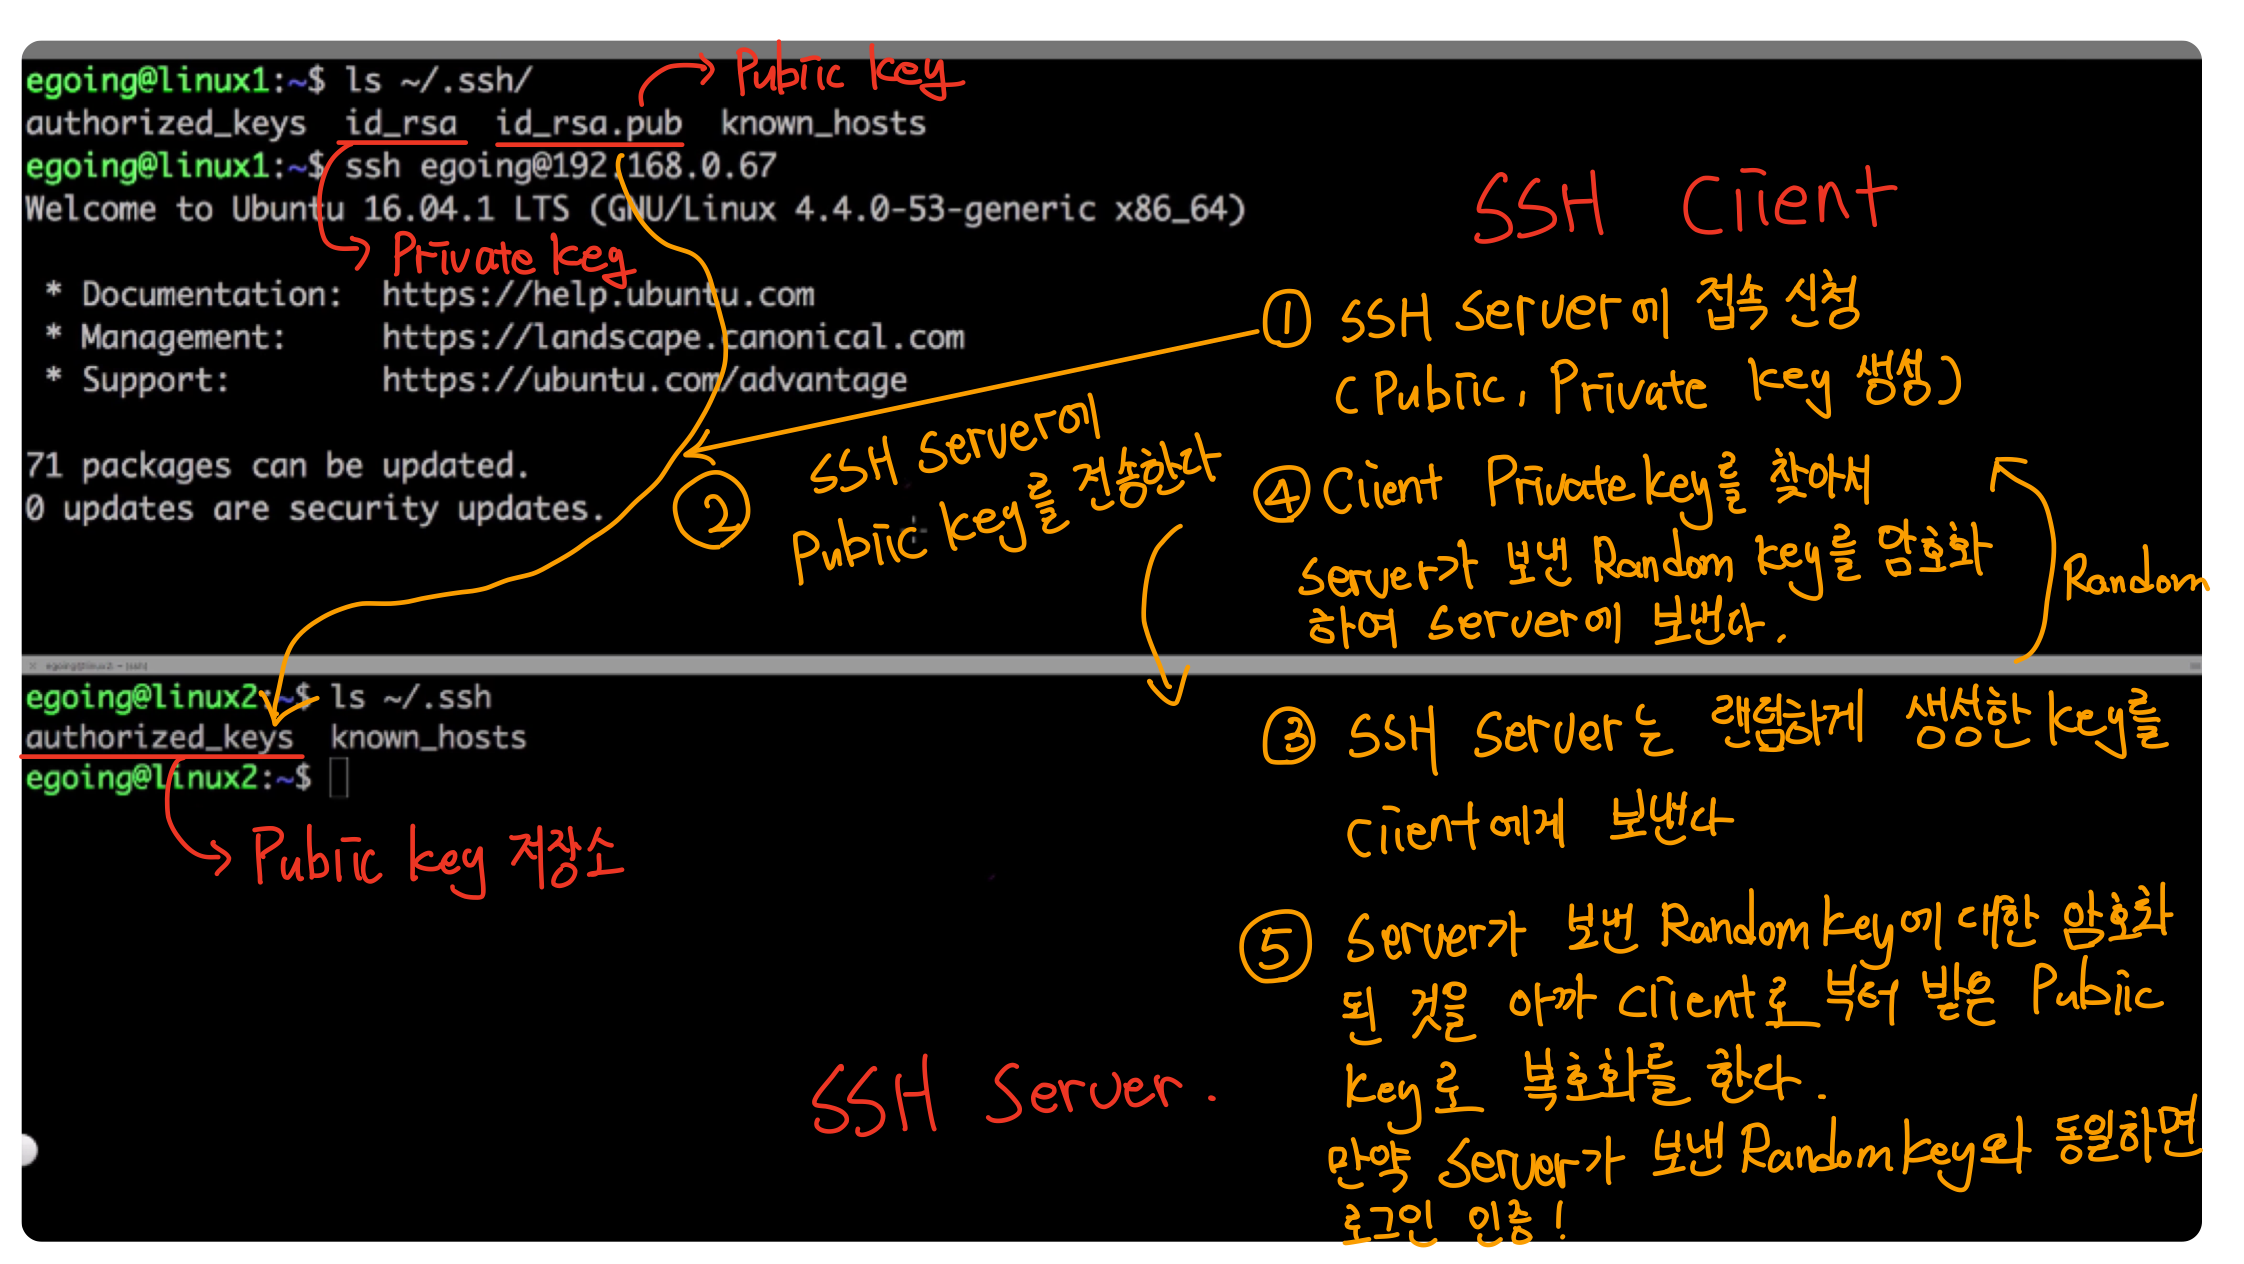 egoing@linux1:~$ ls ~/.ssh/
authorized_keys  id_rsa  id_rsa.pub  known_hosts
Public key
egoing@linux1:~$ ssh egoing@192.168.0.67
Welcome to Ubuntu 16.04.1 LTS (GNU/Linux 4.4.0-53-generic x86_64)
Private key
* Documentation:  https://help.ubuntu.com
* Management:     https://landscape.canonical.com
* Support:        https://ubuntu.com/advantage
71 packages can be updated.
0 updates are security updates.
SSH Client
① SSH Server에 접속 신청
(Public, Private key 생성)
② SSH Server에
Public key를 전송한다
④ Client Private key를 찾아서
Server가 보낸 Random key를 암호화
하여 Server에 보낸다.
Random
egoing@linux2: ~ (ssh)
egoing@linux2:~$ ls ~/.ssh
authorized_keys  known_hosts
egoing@linux2:~$
Public key 저장소
SSH Server.
③ SSH Server는 랜덤하게 생성한 key를
Client에게 보낸다
⑤ Server가 보낸 Random key에 대한 암호화
된 것을 아까 Client로 부터 받은 Public
key로 복호화를 한다.
만약 Server가 보낸 Random key와 동일하면
로그인 인증!